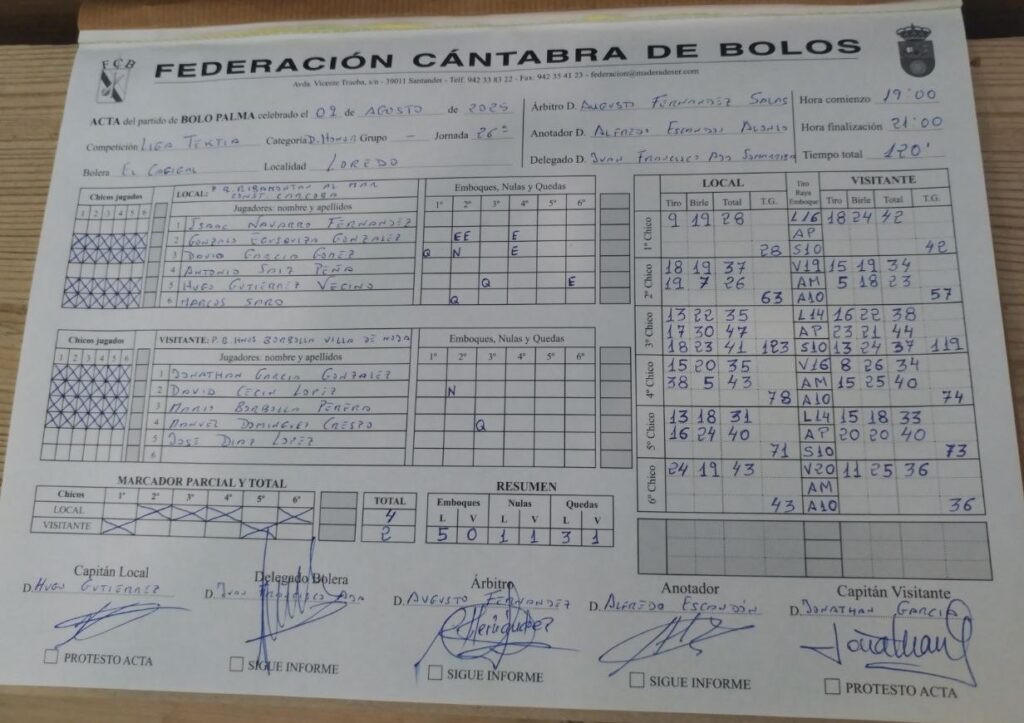 FCB
FEDERACIÓN CÁNTABRA DE BOLOS
Avda. Vicente Trueba, s/n - 39011 Santander - Telf. 942 33 83 22 - Fax. 942 35 41 23 - federacion@maderadeser.com
ACTA del partido de BOLO PALMA celebrado el 09 de AGOSTO de 2025
Competición LIGA TEKTIA Categoría D. HONOR Grupo - Jornada 26ª
Bolera EL CAGIGAL Localidad LOREDO
Árbitro D. AUGUSTO FERNANDEZ SALAS
Anotador D. ALFREDO ESCANDON ALONSO
Delegado D. JUAN FRANCISCO
Hora comienzo 19:00
Hora finalización 21:00
Tiempo total 120'
Chicos jugados
1 2 3 4 5 6
LOCAL: P.B. RIBAMONTAN AL MAR
CONST. CARCOBA
Emboques, Nulas y Quedas
Jugadores: nombre y apellidos 1º 2º 3º 4º 5º 6º
1 ISAAC NAVARRO FERNANDEZ
2 GONZALO EGUSQUIZA GONZALEZ EE E
3 DAVID GARCIA GOMEZ Q N E
4 ANTONIO SAIZ PEÑA
5 HUGO GUTIÉRREZ VECINO Q E
6 MARCOS SARO Q
Chicos jugados
1 2 3 4 5 6
VISITANTE: P.B. HNOS BORBOLLA VILLA DE NOJA
Emboques, Nulas y Quedas
Jugadores: nombre y apellidos 1º 2º 3º 4º 5º 6º
1 JONATHAN GARCIA GONZALEZ
2 DAVID CECIN LOPEZ N
3 MARIO BORBOLLA PERERA
4 MANUEL DOMINGUEZ CRESPO Q
5 JOSE DIAZ LOPEZ
6
MARCADOR PARCIAL Y TOTAL
Chicos 1º 2º 3º 4º 5º 6º TOTAL
LOCAL X X X X 4
VISITANTE X X 2
RESUMEN
Emboques Nulas Quedas
L V L V L V
5 0 1 1 3 1
LOCAL Tiro Raya Emboque VISITANTE
Tiro Birle Total T.G. Tiro Birle Total T.G.
1º Chico
9 19 28 L16 18 24 42
AP
28 S10 42
2º Chico
18 19 37 V19 15 19 34
19 7 26 AM 5 18 23
63 A10 57
3º Chico
13 22 35 L14 16 22 38
17 30 47 AP 23 21 44
18 23 41 123 S10 13 24 37 119
4º Chico
15 20 35 V16 8 26 34
38 5 43 AM 15 25 40
78 A10 74
5º Chico
13 18 31 L14 15 18 33
16 24 40 AP 20 20 40
71 S10 73
6º Chico
24 19 43 V20 11 25 36
AM
43 A10 36
Capitán Local
D. HUGO GUTIÉRREZ
PROTESTO ACTA
Delegado Bolera
D. JUAN FRANCISCO
SIGUE INFORME
Árbitro
D. AUGUSTO FERNANDEZ
SIGUE INFORME
Anotador
D. ALFREDO ESCANDÓN
SIGUE INFORME
Capitán Visitante
D. JONATHAN GARCIA
Jonathan
PROTESTO ACTA